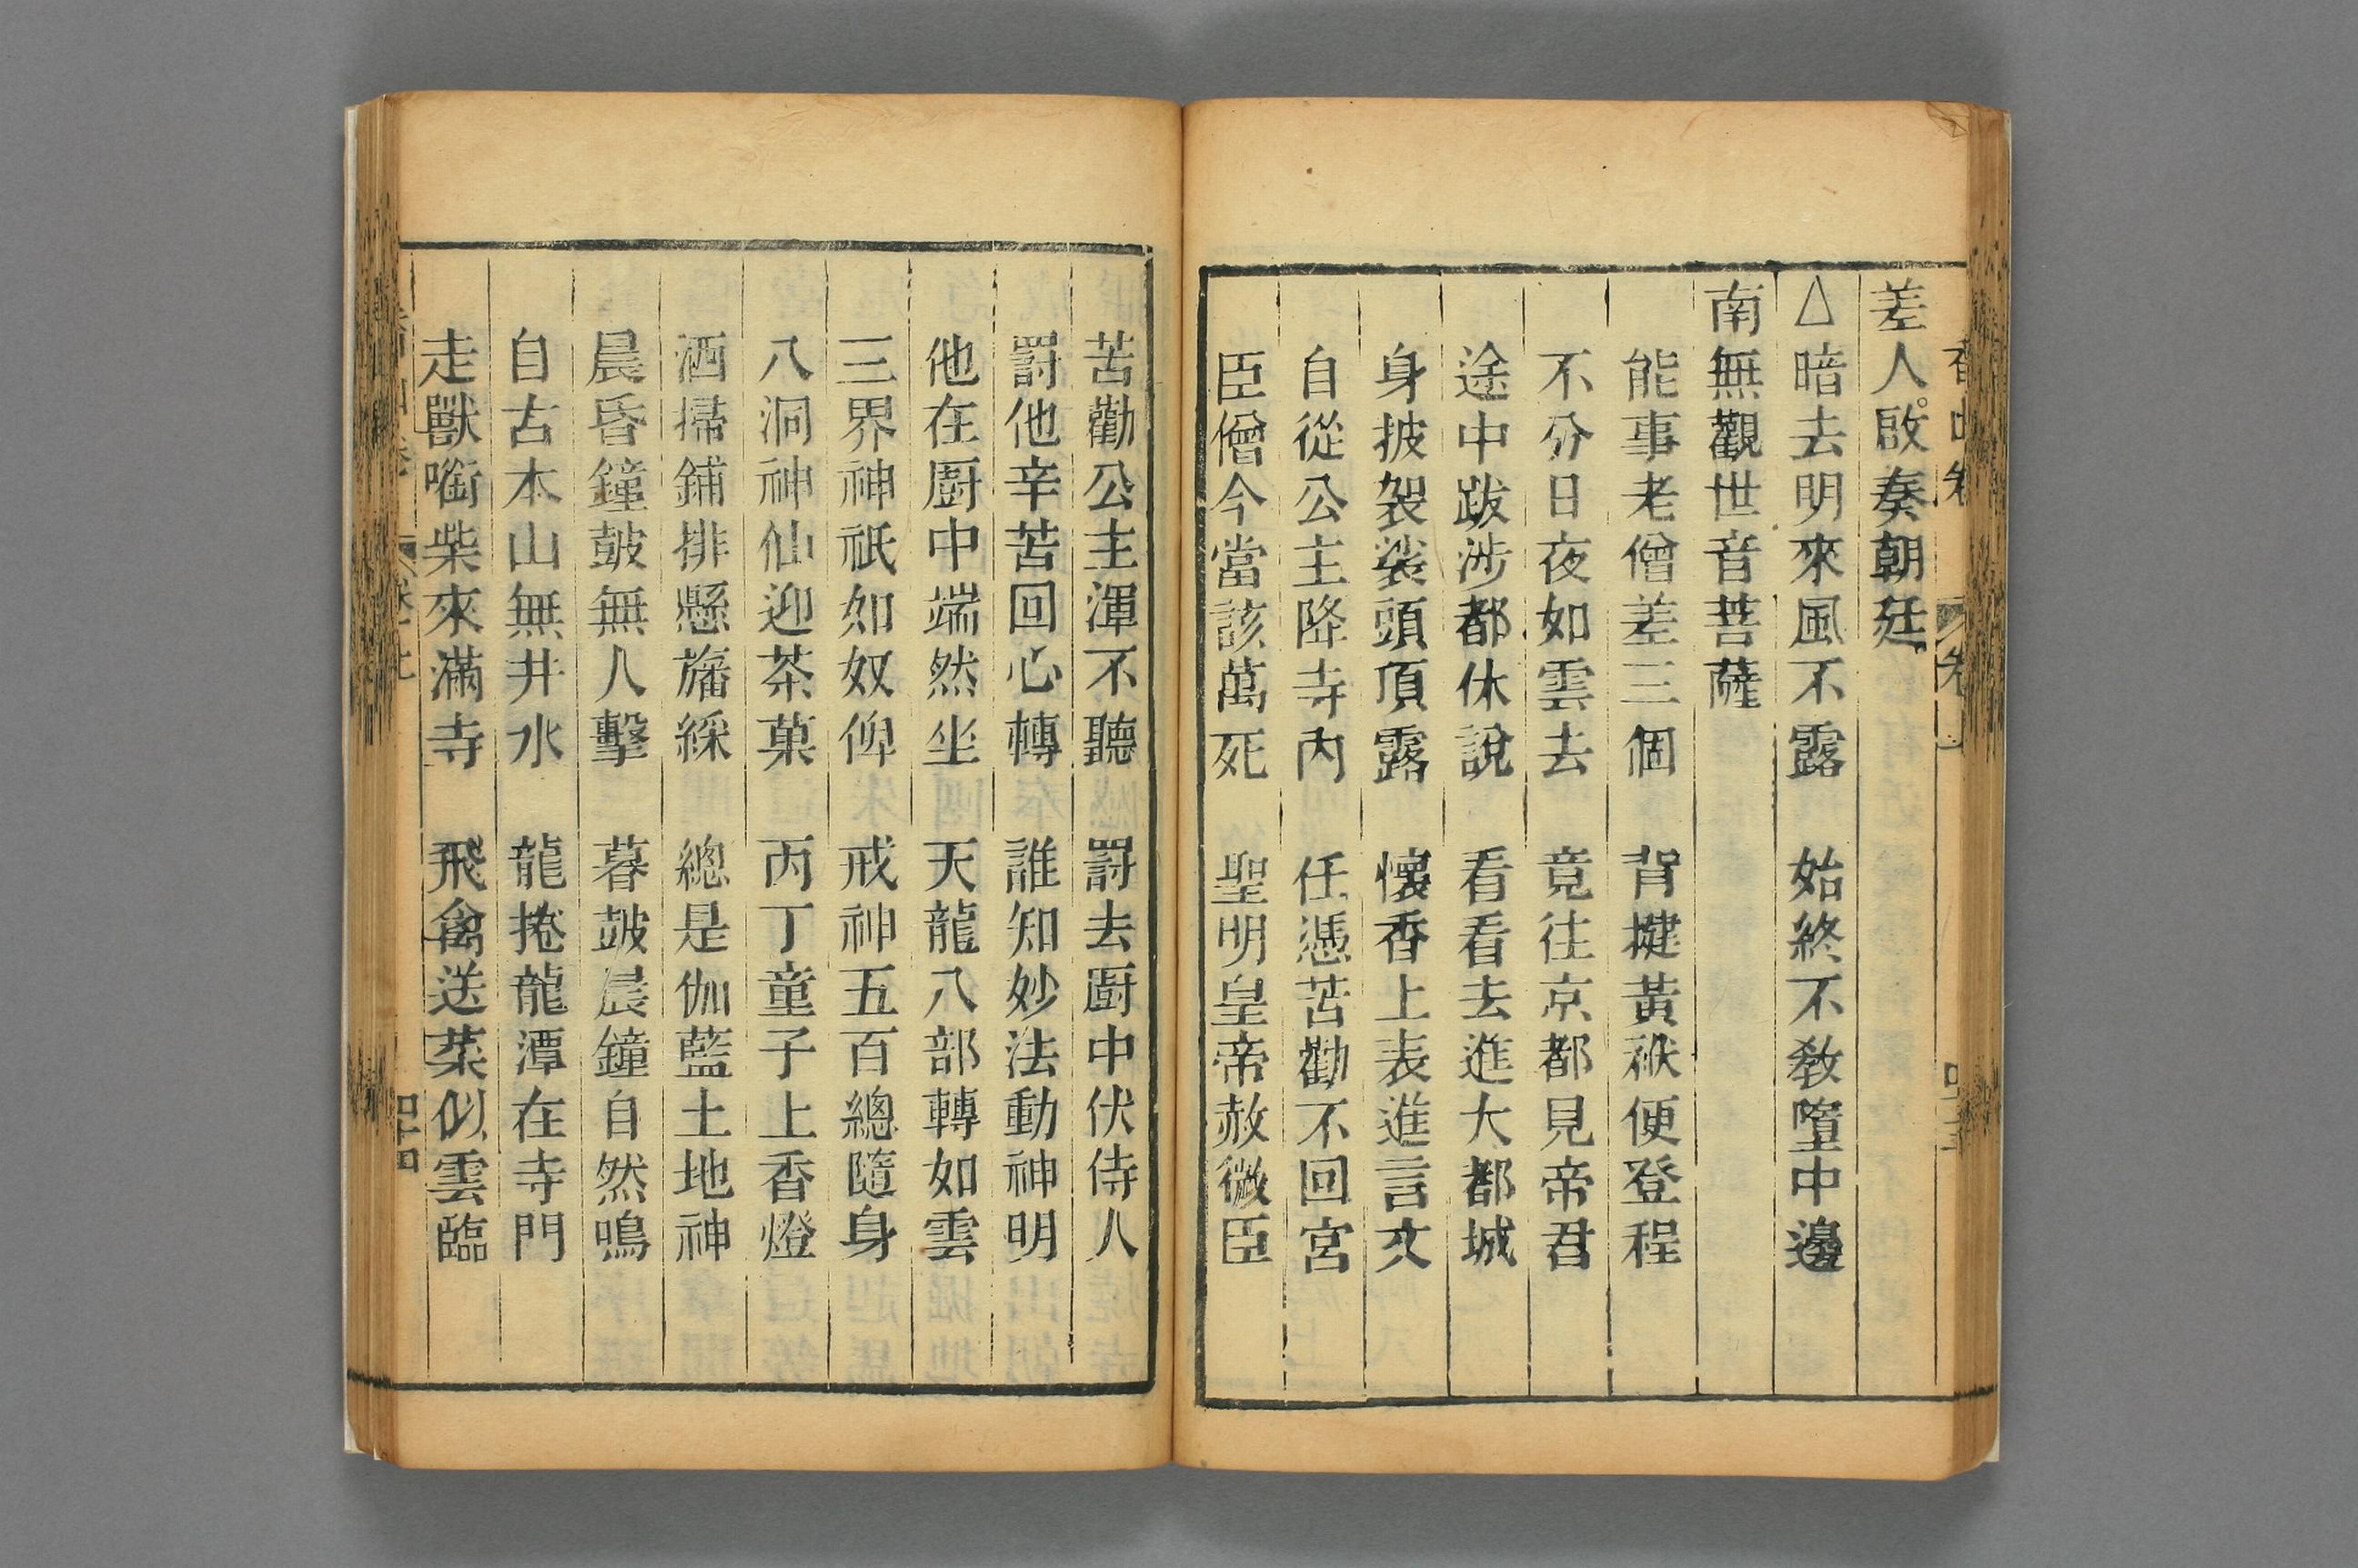 差人啟奏朝廷
△暗去明來風不露　始終不教墮中邊
南無觀世音菩薩
能事老僧差三個　背揵黃袱便登程
不分日夜如雲去　竟往京都見帝君
途中跋涉都休說　看看去進大都城
身披袈裟頭頂露　懷香上表進言文
自從公主降寺內　任憑苦勸不回宮
臣僧今當該萬死　聖明皇帝赦微臣
苦勸公主渾不聽　罸去厨中伏侍人
罸他辛苦回心轉　誰知妙法動神明
他在厨中端然坐　天龍八部轉如雲
三界神祇如奴俾　戒神五百總隨身
八洞神仙迎茶菓　丙丁童子上香燈
洒掃鋪排懸旛綵　總是伽藍土地神
晨昏鐘皷無人擊　暮皷晨鐘自然鳴
自古本山無井水　龍捲龍潭在寺門
走獸啣柴來滿寺　飛禽送菜似雲臨
四十四